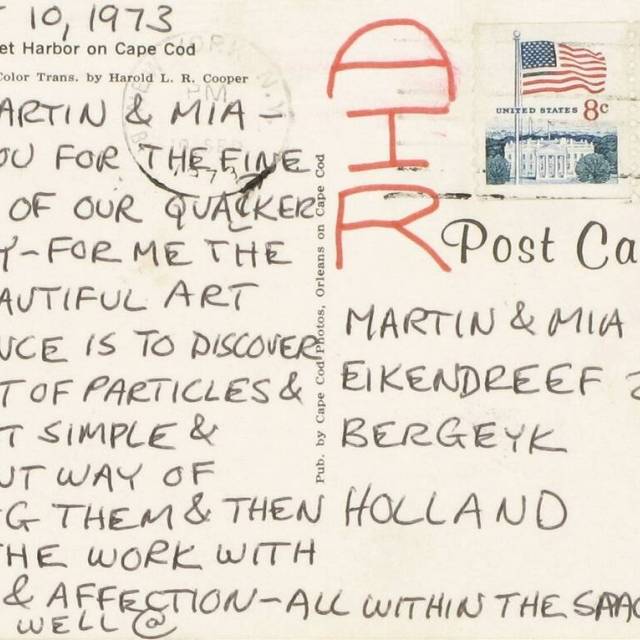 10, 1973
et Harbor on Cape Cod
Color Trans. by Harold L. R. Cooper
ARTIN & MIA –
OU FOR THE FINE
OF OUR QUACKER
Y – FOR ME THE
AUTIFUL ART
NCE IS TO DISCOVER
T OF PARTICLES &
T SIMPLE &
UT WAY OF
G THEM & THEN
HE WORK WITH
& AFFECTION – ALL WITHIN THE SPAC
WELL @
Pub. by Cape Cod Photos, Orleans on Cape Cod
AIR
UNITED STATES 8c
Post Ca
MARTIN & MIA
EIKENDREEF
BERGEYK
HOLLAND
PM